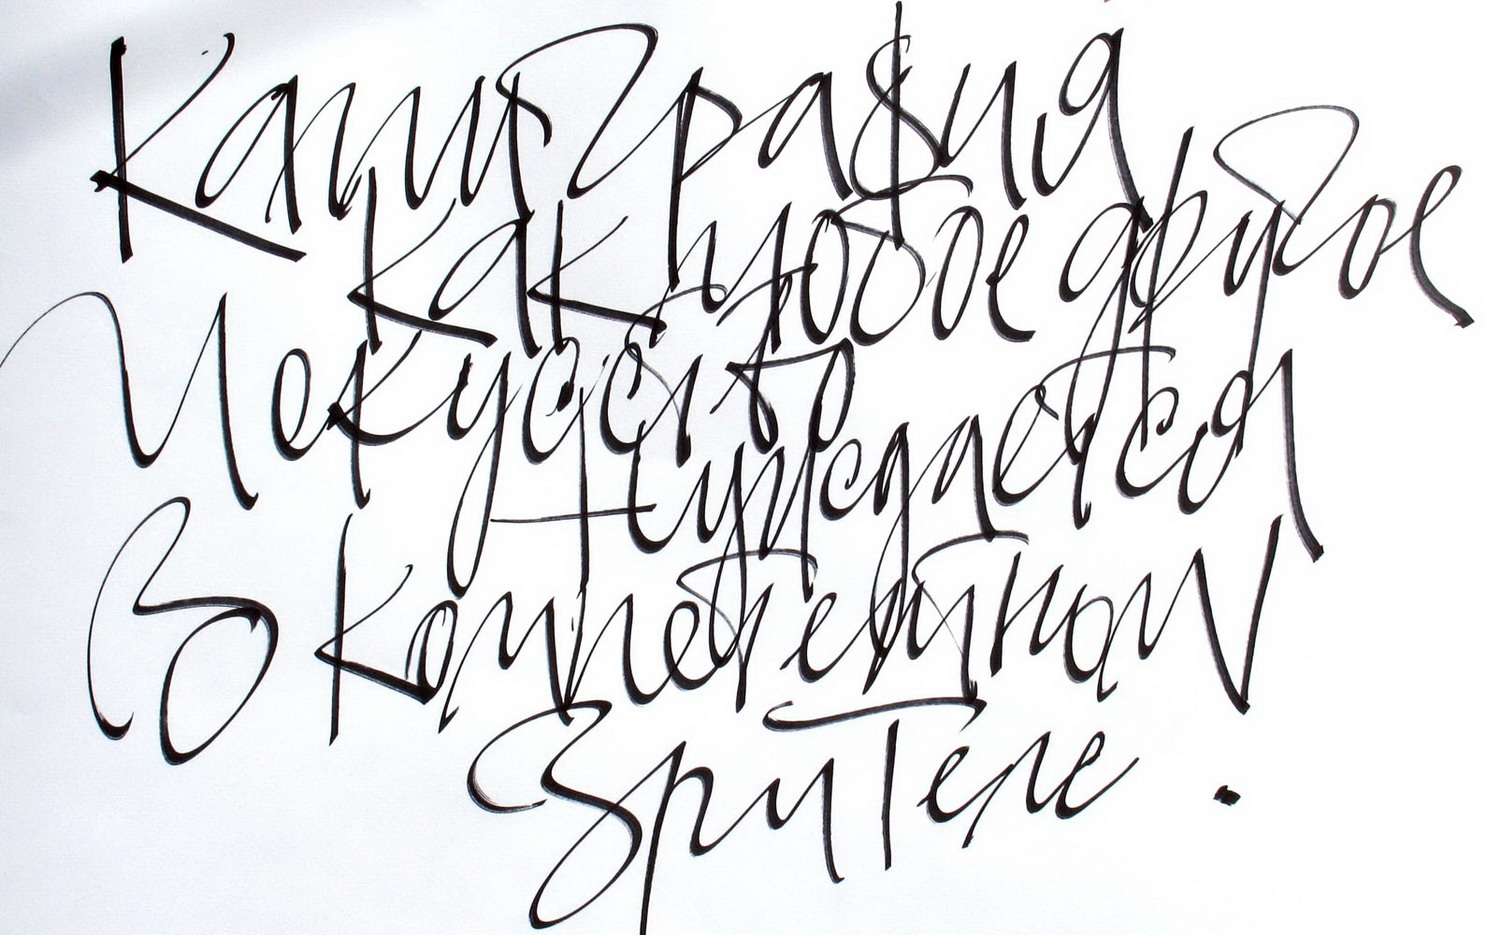 Каллиграфия
как любое другое
Искусство
нуждается
в компетентном
зрителе.